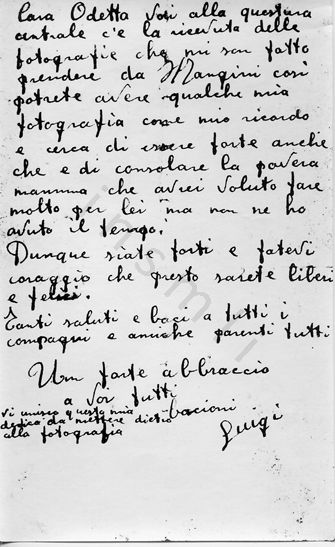 Cara Odetta Voi alla questura
centrale c'è la ricevuta delle
fotografie che mi son fatto
prendere da Mangini così
potrete avere qualche mia
fotografia come mio ricordo
e cerca di essere forte anche
che e di consolare la povera
mamma che avrei voluto fare
molto per lei ma non ne ho
avuto il tempo.
Dunque siate forti e fatevi
coraggio che presto sarete liberi
e felici.
Tanti saluti e baci a tutti i
compagni e amiche parenti tutti
Un forte abbraccio
a Voi tutti
bacioni
Luigi
vi unisco questa mia
dedica da mettere dietro
alla fotografia